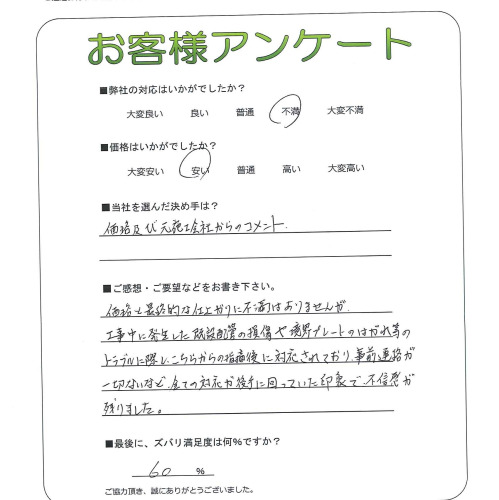 お客様アンケート
■弊社の対応はいかがでしたか？
大変良い　良い　普通　不満　大変不満
■価格はいかがでしたか？
大変安い　安い　普通　高い　大変高い
■当社を選んだ決め手は？
価格及び元施工会社からのコメント.
■ご感想・ご要望などをお書き下さい。
価格と最終的な仕上がりに不満はありませんが
工事中に発生した既設配管の損傷や境界プレートのはがれ等の
トラブルに際し、こちらからの指摘後に対応されており、事前連絡が
一切ないなど、全ての対応が後手に回っていた印象で、不信感が
残りました。
■最後に、ズバリ満足度は何%ですか？
60 %
ご協力頂き、誠にありがとうございました。